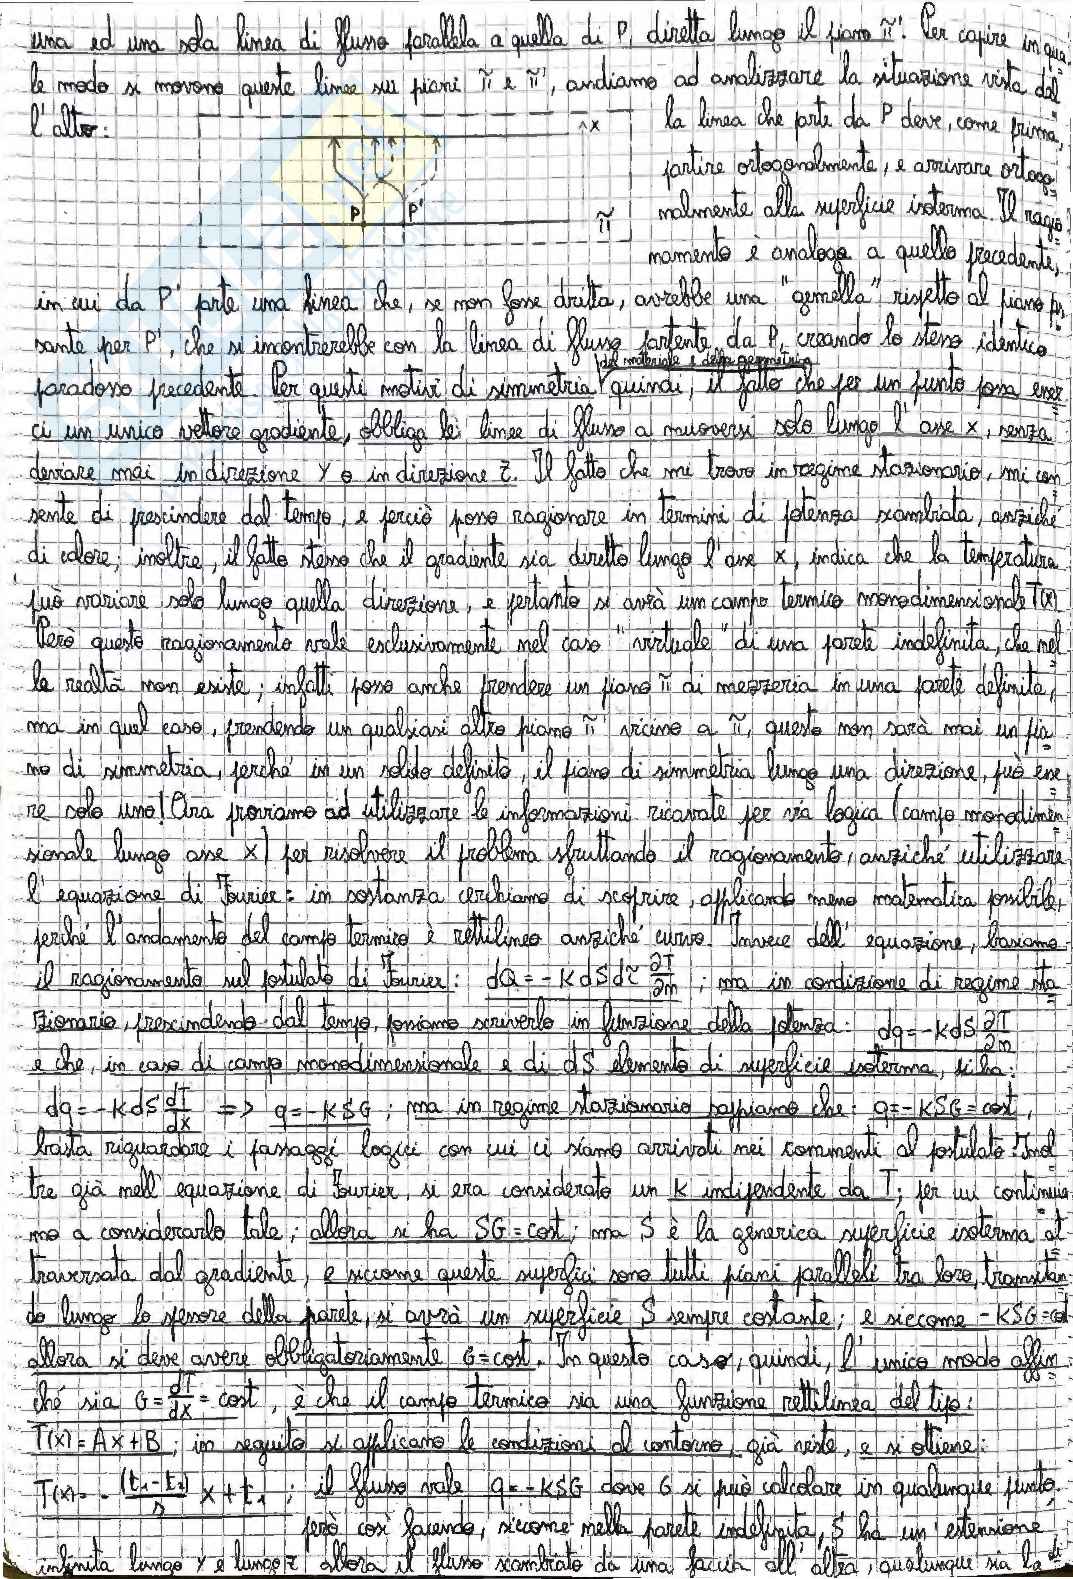 una ed una sola linea di flusso parallela a quella di P, diretta lungo il piano π'. Per capire in qua=
le modo si movono queste linee sui piani π e π', andiamo ad analizzare la situazione vista dal=
l'alto:
x
P
P'
π
la linea che parte da P deve, come prima,
partire ortogonalmente, e arrivare ortogo=
nalmente alla superficie isoterma. Il ragio=
namento è analogo a quello precedente,
in cui da P' parte una linea che, se non fosse dritta, avrebbe una "gemella" rispetto al piano pas=
sante per P', che si incontrerebbe con la linea di flusso partente da P, creando lo stesso identico
del materiale e della geometria
paradosso precedente. Per questi motivi di simmetria quindi, il fatto che per un punto possa esser=
ci un unico vettore gradiente, obbliga le linee di flusso a muoversi solo lungo l'asse x, senza
deviare mai in direzione y o in direzione z. Il fatto che mi trovo in regime stazionario, mi con=
sente di prescindere dal tempo, e perciò posso ragionare in termini di potenza scambiata, anziché
di calore; inoltre, il fatto stesso che il gradiente sia diretto lungo l'asse x, indica che la temperatura
può variare solo lungo quella direzione, e pertanto si avrà un campo termico monodimensionale T(x).
Però questo ragionamento vale esclusivamente nel caso "virtuale" di una parete indefinita, che nel=
la realtà non esiste; infatti posso anche prendere un piano π di mezzeria in una parete definita,
ma in quel caso, prendendo un qualsiasi altro piano π' vicino a π, questo non sarà mai un pia=
no di simmetria, perché in un solido definito, il piano di simmetria lungo una direzione, può esse=
re solo uno! Ora proviamo ad utilizzare le informazioni ricavate per via logica (campo monodimen=
sionale lungo asse x) per risolvere il problema sfruttando il ragionamento, anziché utilizzare
l'equazione di Fourier: in sostanza cerchiamo di scoprire, applicando meno matematica possibile,
perché l'andamento del campo termico è rettilineo anziché curvo. Invece dell'equazione, basiamo
il ragionamento sul postulato di Fourier: dQ = -K dS dτ ∂T/∂n ; ma in condizione di regime sta=
zionario, prescindendo dal tempo, possiamo scriverlo in funzione della potenza: dq = -K dS ∂T/∂n
e che, in caso di campo monodimensionale e di dS elemento di superficie isoterma, si ha:
dq = -K dS dT/dx => q = -KSG ; ma in regime stazionario sappiamo che: q = -KSG = cost,
basta riguardare i passaggi logici con cui ci siamo arrivati nei commenti al postulato. Inol=
tre già nell'equazione di Fourier, si era considerato un K indipendente da T; per cui continuia=
mo a considerarlo tale; allora si ha SG = cost; ma S è la generica superficie isoterma at=
traversata dal gradiente, e siccome queste superfici sono tutti piani paralleli tra loro, transitan=
do lungo lo spessore della parete, si avrà un superficie S sempre costante; e siccome -KSG = cost
allora si deve avere obbligatoriamente G = cost. In questo caso, quindi, l'unico modo affin=
ché sia G = dT/dx = cost, è che il campo termico sia una funzione rettilinea del tipo:
T(x) = Ax + B; in seguito si applicano le condizioni al contorno, già viste, e si ottiene:
T(x) = - (t₁ - t₂)/s x + t₁ ; il flusso vale q = -KSG dove G si può calcolare in qualunque punto.
però così facendo, siccome nella parete indefinita, S ha un'estensione
infinita lungo y e lungo z allora il flusso scambiato da una faccia all'altra, qualunque sia la di=